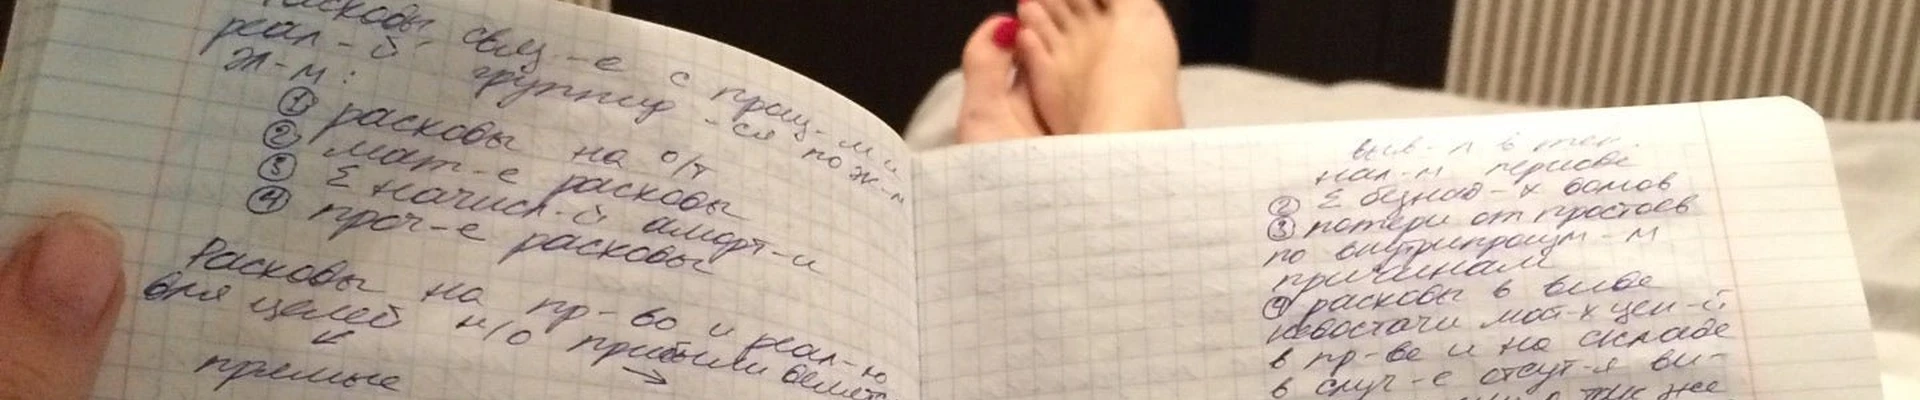 Расходы, связ-е с произ-м и
реал-й, группир-ся по эл-м
эл-м:
① расходы на о/т
② мат-е расходы
③ Σ начисл-й аморт-и
④ проч-е расходы
Расходы на пр-во и реал-ю
для целей н/о прибыли делятс
прямые
выв-л в тек.
нал-м периоде
② Σ безнад-х долгов
③ потери от простоев
по внутрипроизв-м
причинам
④ расходы в виде
недостачи мат-х цен-й
в пр-ве и на складе
в случ-е отсут-я ви-